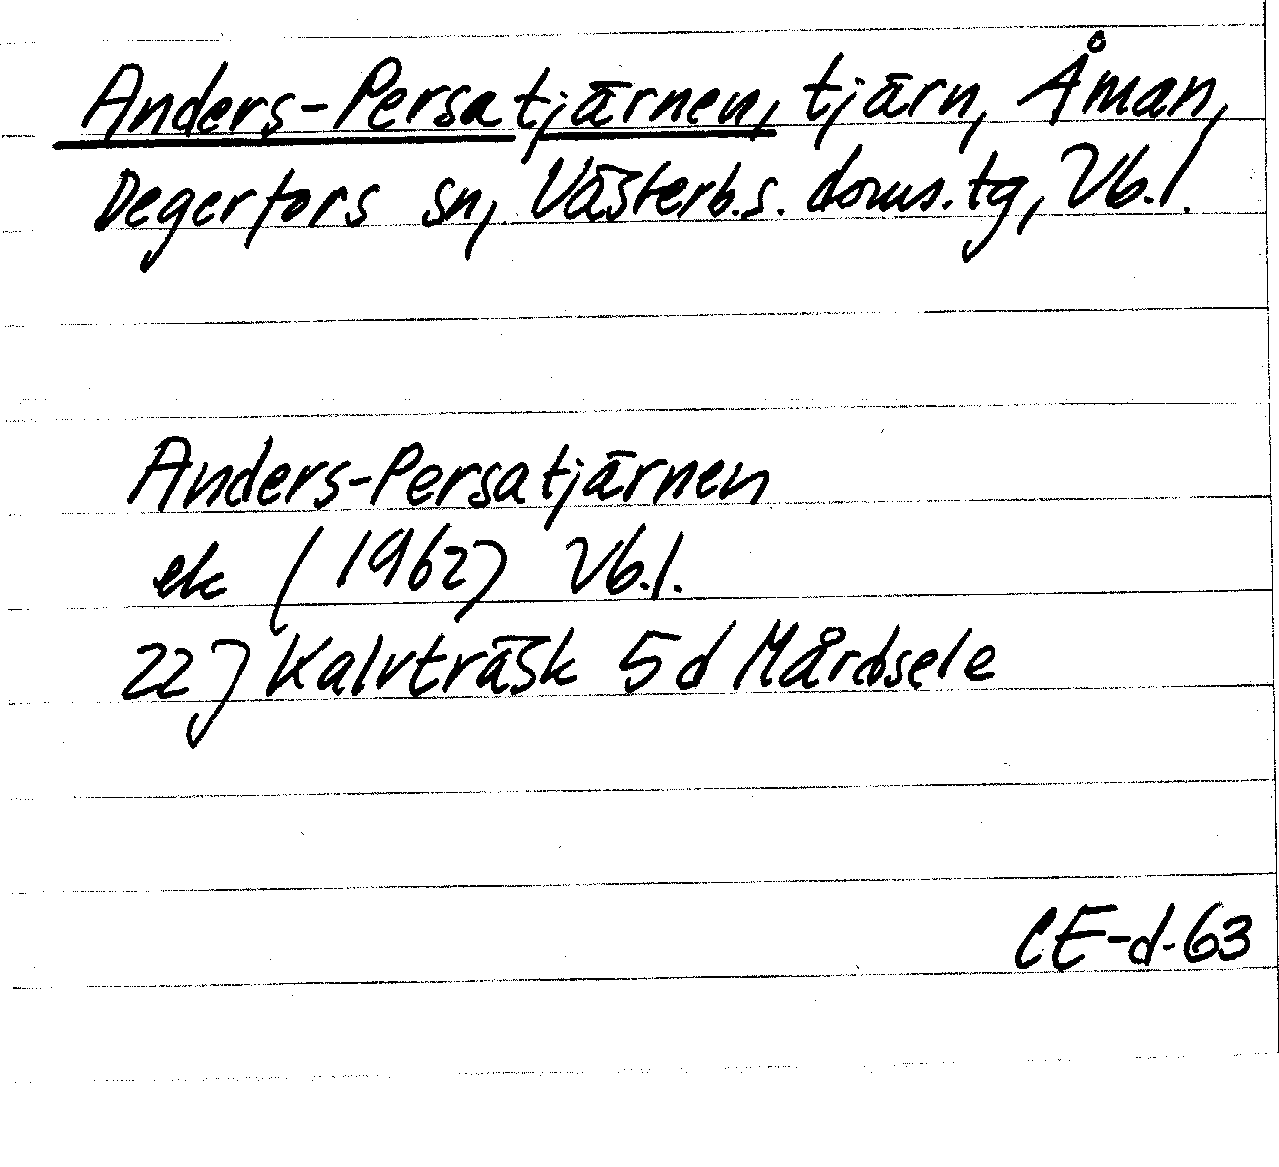 Anders-Persatjärnen, tjärn, Åman,
Degerfors sn, Västerb.s. doms.tg, Vb.l.
Anders-Persatjärnen
ek (1962) Vb.l.
22J Kalvträsk 5d Mårdsele
CE-d-63